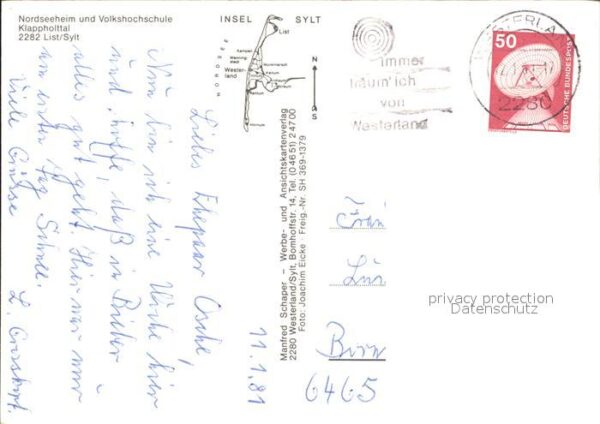 Nordseeheim und Volkshochschule
Klappholttal
2282 List/Sylt
INSEL SYLT
NORDSEE
List
Kampen
Wenning-
stedt
Wester-
land
Munkmarsch
Keitum
Morsum
Rantum
Hörnum
N
S
immer
träum' ich
von
Westerland
WESTERLAND
2280
50
DEUTSCHE BUNDESPOST
11.1.81
Liebes Ehepaar Osche,
Nun bin ich eine Woche hier
und hoffe, daß in Bieber
alles gut geht. Hier war nur
am ersten Tag Schnee.
Viele Grüsse
L.
Manfred Schaper - Werbe- und Ansichtskartenverlag
2280 Westerland/Sylt, Bomhoffstr. 14, Tel. (04651) 24700
Foto: Joachim Eicke · Freig.-Nr. SH 369-1379
6465
privacy protection
Datenschutz